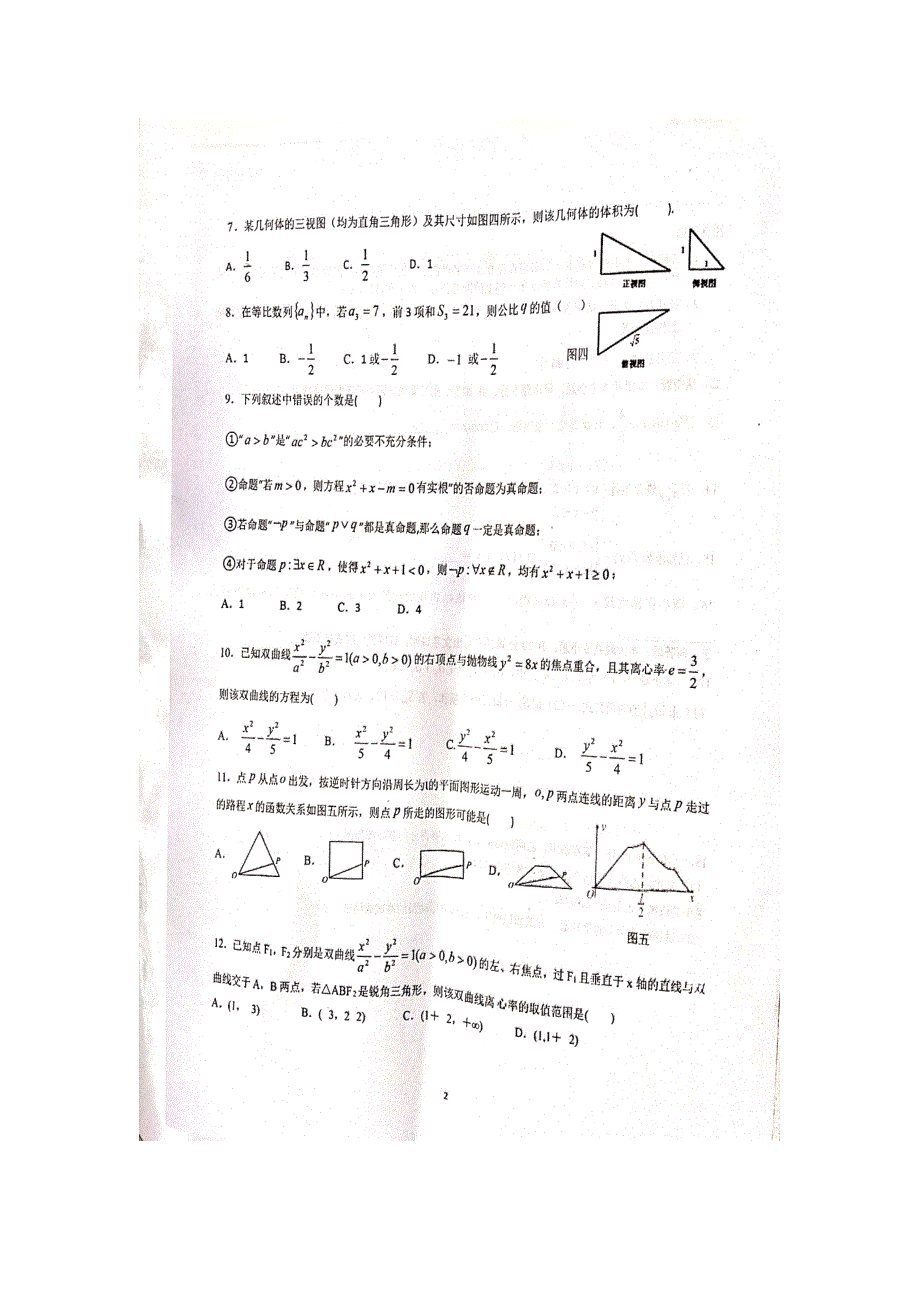 7. 某几何体的三视图（均为直角三角形）及其尺寸如图四所示，则该几何体的体积为(      ).
A. 1/6    B. 1/3    C. 1/2    D. 1
1
正视图
1
1
侧视图
8. 在等比数列{aₙ}中，若a₃=7，前3项和S₃=21，则公比q的值（   ）
A. 1    B. -1/2    C. 1或-1/2    D. -1 或-1/2
图四
√5
俯视图
9. 下列叙述中错误的个数是(     )
①“a>b”是“ac²>bc²”的必要不充分条件；
②命题“若m>0，则方程x²+x-m=0有实根”的否命题为真命题；
③若命题“¬p”与命题“p∨q”都是真命题,那么命题q一定是真命题；
④对于命题p:∃x∈R，使得x²+x+1<0，则¬p:∀x∉R，均有x²+x+1≥0；
A. 1    B. 2    C. 3    D. 4
10. 已知双曲线x²/a²-y²/b²=1(a>0,b>0)的右顶点与抛物线y²=8x的焦点重合，且其离心率e=3/2，
则该双曲线的方程为(     )
A. x²/4-y²/5=1    B. x²/5-y²/4=1    C. y²/4-x²/5=1    D. y²/5-x²/4=1
11. 点p从点o出发，按逆时针方向沿周长为l的平面图形运动一周，o,p两点连线的距离y与点p走过
的路程x的函数关系如图五所示，则点p所走的图形可能是(     )
A. O P    B. O P    C. O P    D. O P
y
O
l/2
x
图五
12. 已知点F₁，F₂分别是双曲线x²/a²-y²/b²=1(a>0,b>0)的左、右焦点，过F₁且垂直于x轴的直线与双
曲线交于A，B两点，若△ABF₂是锐角三角形，则该双曲线离心率的取值范围是(     )
A. (1,  3)    B. ( 3, 2 2)    C. (1+ 2, +∞)    D. (1,1+ 2)
2